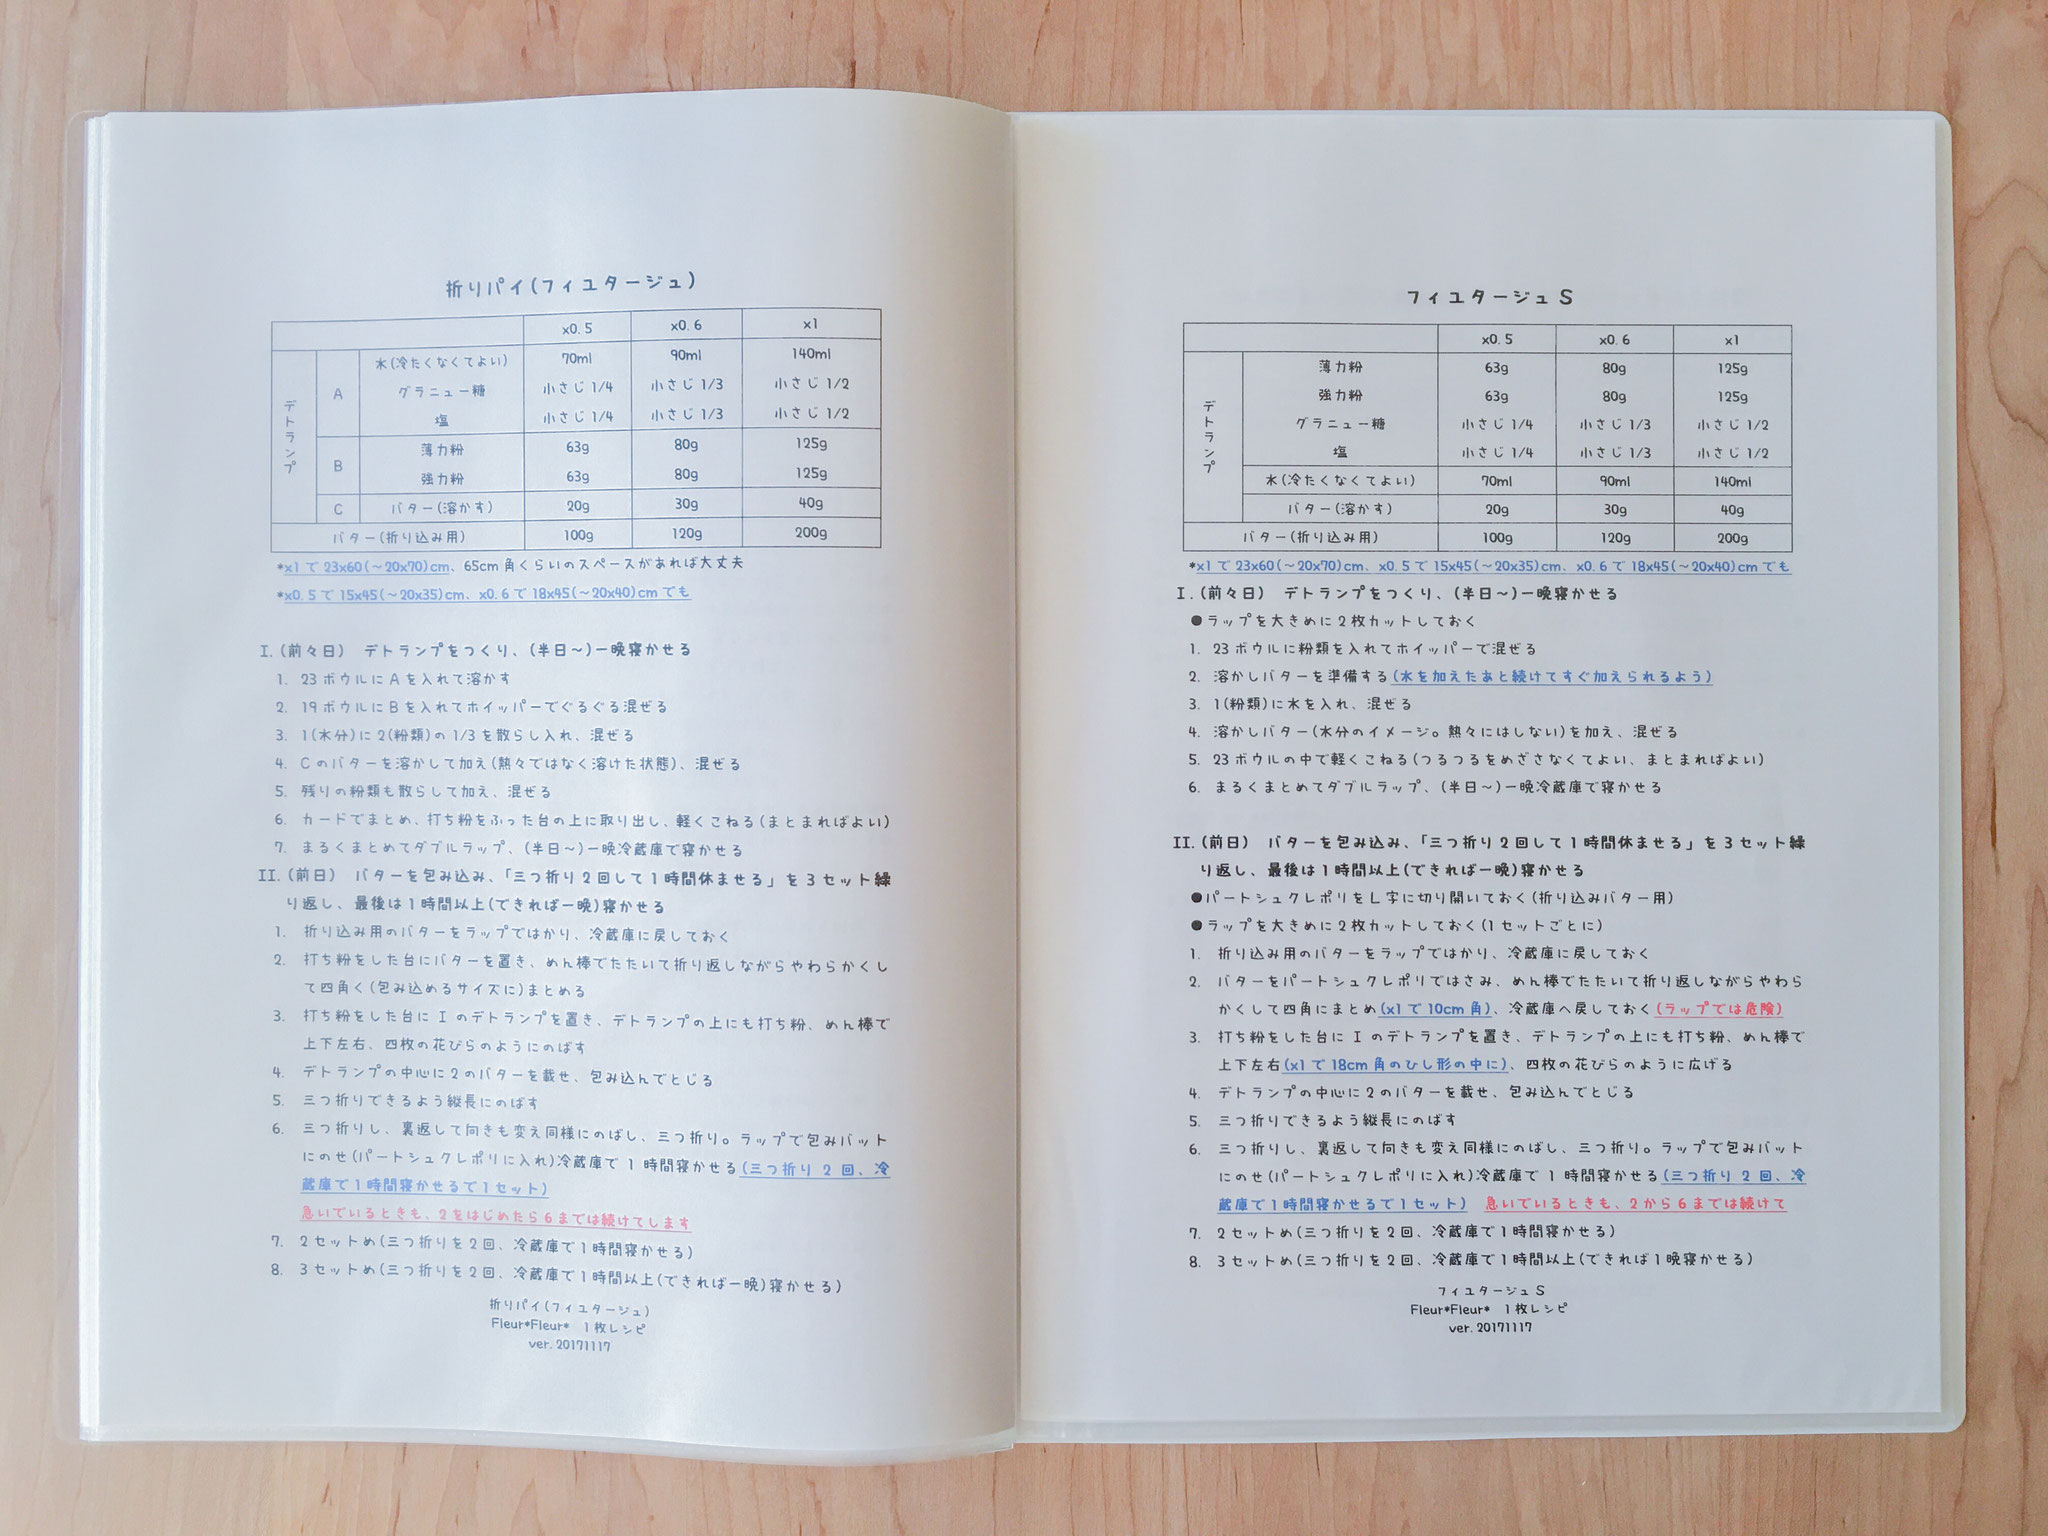 折りパイ(フィユタージュ)
x0.5 x0.6 x1
デトランプ A 水(冷たくなくてよい) 70ml 90ml 140ml
グラニュー糖 小さじ1/4 小さじ1/3 小さじ1/2
塩 小さじ1/4 小さじ1/3 小さじ1/2
B 薄力粉 63g 80g 125g
強力粉 63g 80g 125g
C バター(溶かす) 20g 30g 40g
バター(折り込み用) 100g 120g 200g
*x1で23x60(～20x70)cm、65cm角くらいのスペースがあれば大丈夫
*x0.5で15x45(～20x35)cm、x0.6で18x45(～20x40)cmでも
I.(前々日) デトランプをつくり、(半日～)一晩寝かせる
1. 23ボウルにAを入れて溶かす
2. 19ボウルにBを入れてホイッパーでぐるぐる混ぜる
3. 1(水分)に2(粉類)の1/3を散らし入れ、混ぜる
4. Cのバターを溶かして加え(熱々ではなく溶けた状態)、混ぜる
5. 残りの粉類も散らして加え、混ぜる
6. カードでまとめ、打ち粉をふった台の上に取り出し、軽くこねる(まとまればよい)
7. まるくまとめてダブルラップ、(半日～)一晩冷蔵庫で寝かせる
II.(前日) バターを包み込み、「三つ折り2回して1時間休ませる」を3セット繰
り返し、最後は1時間以上(できれば一晩)寝かせる
1. 折り込み用のバターをラップではかり、冷蔵庫に戻しておく
2. 打ち粉をした台にバターを置き、めん棒でたたいて折り返しながらやわらかくし
て四角く(包み込めるサイズに)まとめる
3. 打ち粉をした台にIのデトランプを置き、デトランプの上にも打ち粉、めん棒で
上下左右、四枚の花びらのようにのばす
4. デトランプの中心に2のバターを載せ、包み込んでとじる
5. 三つ折りできるよう縦長にのばす
6. 三つ折りし、裏返して向きも変え同様にのばし、三つ折り。ラップで包みバット
にのせ(パートシュクレポリに入れ)冷蔵庫で1時間寝かせる(三つ折り2回、冷
蔵庫で1時間寝かせるで1セット)
急いでいるときも、2をはじめたら6までは続けてします
7. 2セットめ(三つ折りを2回、冷蔵庫で1時間寝かせる)
8. 3セットめ(三つ折りを2回、冷蔵庫で1時間以上(できれば一晩)寝かせる)
折りパイ(フィユタージュ)
Fleur*Fleur* 1枚レシピ
ver.20171117
フィユタージュS
x0.5 x0.6 x1
デトランプ 薄力粉 63g 80g 125g
強力粉 63g 80g 125g
グラニュー糖 小さじ1/4 小さじ1/3 小さじ1/2
塩 小さじ1/4 小さじ1/3 小さじ1/2
水(冷たくなくてよい) 70ml 90ml 140ml
バター(溶かす) 20g 30g 40g
バター(折り込み用) 100g 120g 200g
*x1で23x60(～20x70)cm、x0.5で15x45(～20x35)cm、x0.6で18x45(～20x40)cmでも
I.(前々日) デトランプをつくり、(半日～)一晩寝かせる
●ラップを大きめに2枚カットしておく
1. 23ボウルに粉類を入れてホイッパーで混ぜる
2. 溶かしバターを準備する(水を加えたあと続けてすぐ加えられるよう)
3. 1(粉類)に水を入れ、混ぜる
4. 溶かしバター(水分のイメージ。熱々にはしない)を加え、混ぜる
5. 23ボウルの中で軽くこねる(つるつるをめざさなくてよい、まとまればよい)
6. まるくまとめてダブルラップ、(半日～)一晩冷蔵庫で寝かせる
II.(前日) バターを包み込み、「三つ折り2回して1時間休ませる」を3セット繰
り返し、最後は1時間以上(できれば一晩)寝かせる
●パートシュクレポリをL字に切り開いておく(折り込みバター用)
●ラップを大きめに2枚カットしておく(1セットごとに)
1. 折り込み用のバターをラップではかり、冷蔵庫に戻しておく
2. バターをパートシュクレポリではさみ、めん棒でたたいて折り返しながらやわら
かくして四角にまとめ(x1で10cm角)、冷蔵庫へ戻しておく(ラップでは危険)
3. 打ち粉をした台にIのデトランプを置き、デトランプの上にも打ち粉、めん棒で
上下左右(x1で18cm角のひし形の中に)、四枚の花びらのように広げる
4. デトランプの中心に2のバターを載せ、包み込んでとじる
5. 三つ折りできるよう縦長にのばす
6. 三つ折りし、裏返して向きも変え同様にのばし、三つ折り。ラップで包みバット
にのせ(パートシュクレポリに入れ)冷蔵庫で1時間寝かせる(三つ折り2回、冷
蔵庫で1時間寝かせるで1セット) 急いでいるときも、2から6までは続けて
7. 2セットめ(三つ折りを2回、冷蔵庫で1時間寝かせる)
8. 3セットめ(三つ折りを2回、冷蔵庫で1時間以上(できれば1晩寝かせる)
フィユタージュS
Fleur*Fleur* 1枚レシピ
ver.20171117